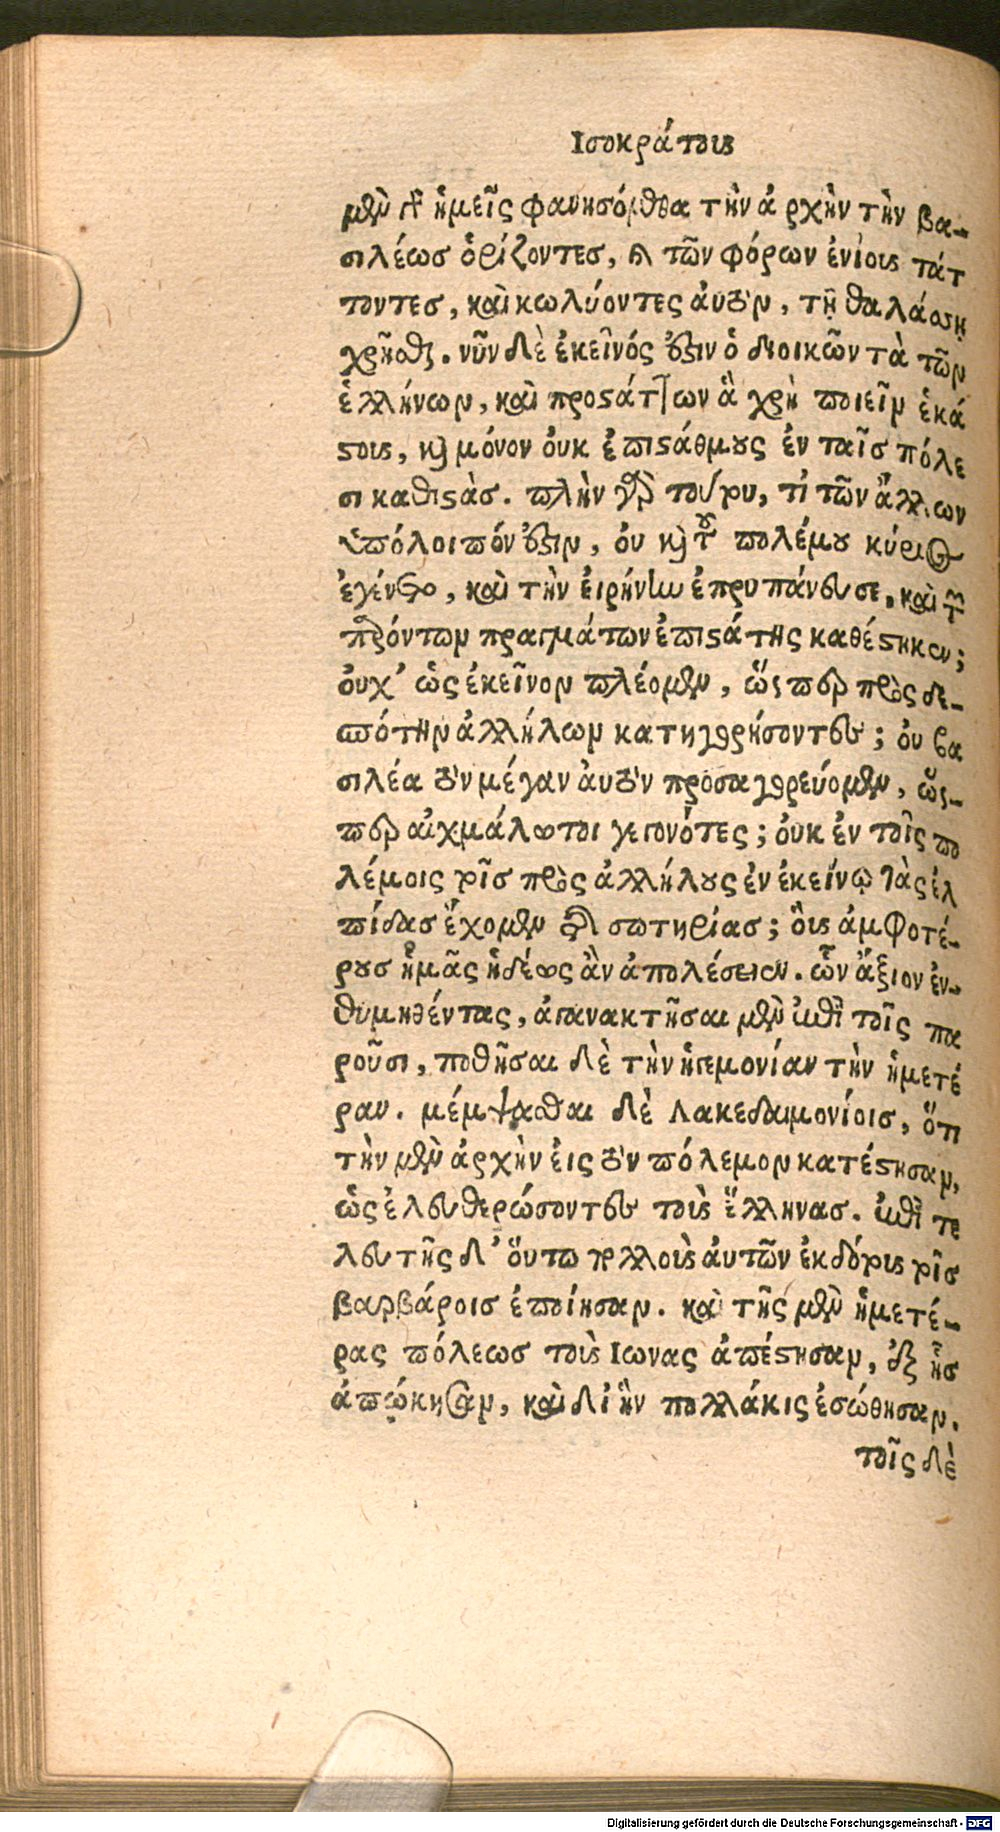 Ισοκράτους
μὲν γὰρ ἡμεῖς φανησόμεθα τὴν ἀρχὴν τὴν βα-
σιλέως ὁρίζοντες, καὶ τῶν φόρων ἐνίους τάτ
τοντες, καὶ κωλύοντες ἀυτὸν, τῇ θαλάσσῃ
χρῆσθαι. νῦν δὲ ἐκεῖνός ἐστιν ὁ διοικῶν τὰ τῶν
ἑλλήνων, καὶ προστάττων ἃ χρὴ ποιεῖν ἑκά
στους, καὶ μόνον ὀυκ ἐπιστάθμους ἐν ταῖς πόλε
σι καθιστάς. πλὴν γὰρ τούτου, τί τῶν ἄλλων
ὑπόλοιπόν ἐστιν, ὀυ καὶ τοῦ πολέμου κύριος
ἐγένετο, καὶ τὴν ἐιρήνην ἐπρυτάνευσε, καὶ τῶν
παρόντων πραγμάτων ἐπιστάτης καθέστηκεν;
ὀυχ' ὡς ἐκεῖνον πλέομεν, ὥσπερ πρὸς δε-
σπότην ἀλλήλων κατηγορήσοντες; ὀυ βα
σιλέα τὸν μέγαν ἀυτὸν προσαγορεύομεν, ὥσ-
περ αἰχμάλωτοι γεγονότες; ὀυκ ἐν τοῖς πο
λέμοις τοῖς πρὸς ἀλλήλους ἐν ἐκείνῳ τὰς ἐλ
πίδας ἔχομεν τῆς σωτηρίας; ὃις ἀμφοτέ-
ρους ἡμᾶς ἡδέως ἂν ἀπολέσειεν. ὧν ἄξιον ἐν-
θυμηθέντας, ἀγανακτῆσαι μὲν ἐπὶ τοῖς πα
ροῦσι, ποθῆσαι δὲ τὴν ἡγεμονίαν τὴν ἡμετέ
ραν. μέμψασθαι δὲ Λακεδαιμονίοις, ὅτι
τὴν μὲν ἀρχὴν ἐις τὸν πόλεμον κατέστησαν,
ὡς ἐλευθερώσοντες τοὺς ἕλληνας. ἐπὶ τε
λευτῆς δ' ὅυτω πολλοὺς ἀυτῶν ἐκδότους τοῖς
βαρβάροις ἐποίησαν. καὶ τῆς μὲν ἡμετέ-
ρας πόλεως τοὺς Ιωνας ἀπέστησαν, ἐξ ἧς
ἀπῴκησαν, καὶ δἰ ἣν πολλάκις ἐσώθησαν.
τοῖς δὲ
Digitalisierung gefördert durch die Deutsche Forschungsgemeinschaft - DFG